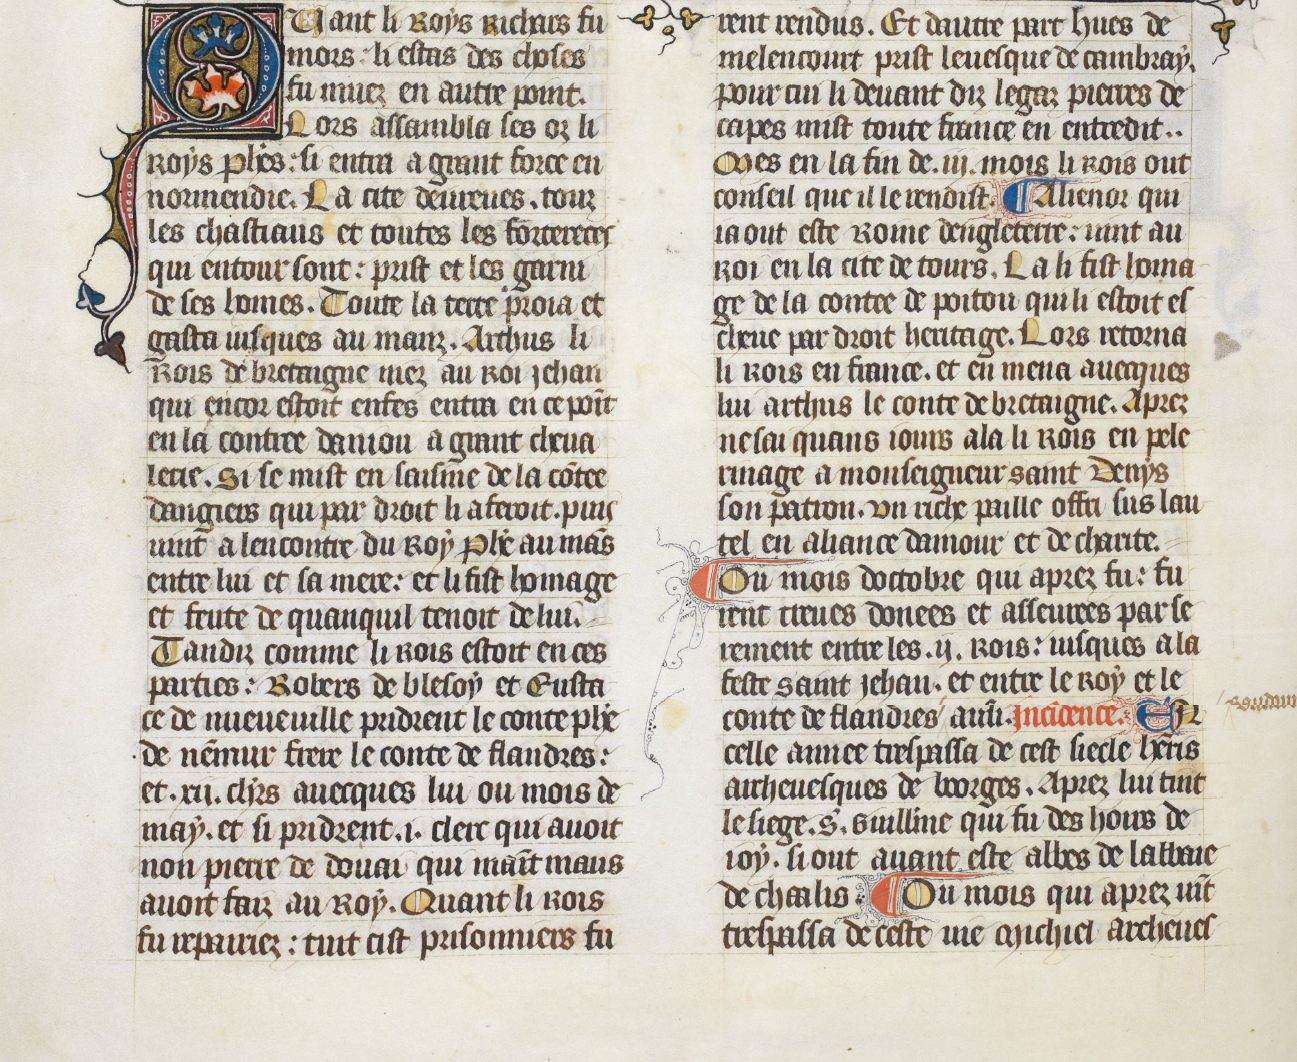 Quant li Roys Richars fu
mors. li estas des choses
fu muez en autre point.
Lors assambla ses oz li
roÿs phẽs: si entra a grant force en
normendie. La cite deureues. touz
les chastiaus et toutes les fortereces
qui entour sont: prist et les garni
de ses homes. Toute la terre proia et
gasta iusques au manz. Arthus li
Rois de bretaigne niez au Roi jehan
qui encor estoit enfes entra en ce poĩt
en la contree daniou a grant cheua
lerie. Si se mist en saisine de la cõtee
dangiers qui par droit li aferoit. puis
uint a lencontre du Roÿ phẽ au mãs
entre lui et sa mere: et li fist homage
et feute de quanquil tenoit de lui.
Tandiz comme li Rois estoit en ces
parties: Robers de blesoÿ et Eusta
ce de nueueuille pridrent le conte phẽ
de nẽmur frere le conte de flandres:
et .xii. chĩrs auecques lui ou mois de
maÿ. et si pridrent .i. clerc qui auoit
non pierre de douai qui maĩt maus
auoit faiz au Roÿ. Quant li Rois
fu repairiez: tuit cist prisonniers fu
rent rendus. Et dautre part hues de
melencourt prist leuesque de cambraÿ.
pour cui li deuant diz legaz pierres de
capes mist toute france en entredit..
Mes en la fin de .iii. mois li Rois out
conseil que il le rendist. Alienor qui
ia out este Roine dengleterre: uint au
Roi en la cite de tours. La li fist homa
ge de la contee de poitou qui li estoit es
cheue par droit heritage. Lors retorna
li Rois en france. et en mena auecques
lui arthus le conte de bretaigne. Aprez
ne sai quans iours ala li Rois en pele
rinage a monseigneur saint Denÿs
son patron. un riche paille offri sus lau
tel en aliance damour et de charite.
Ou mois doctobre qui aprez fu: fu
rent treues donees et asseurees par se
rement entre les .ij. Rois: iusques a la
feste saint jehan. et entre le Roÿ et le
conte de flandres ausi. Incidence. En
celle annee trespassa de cest siecle hẽris
archeuesques de boorges. Aprez lui tint
le siege .S. Guilline qui fu des hoirs de
ioÿ. si out auant este abbes de labbaie
de chaalis: Ou mois qui aprez uĩt
trespassa de ceste uie michiel archeues